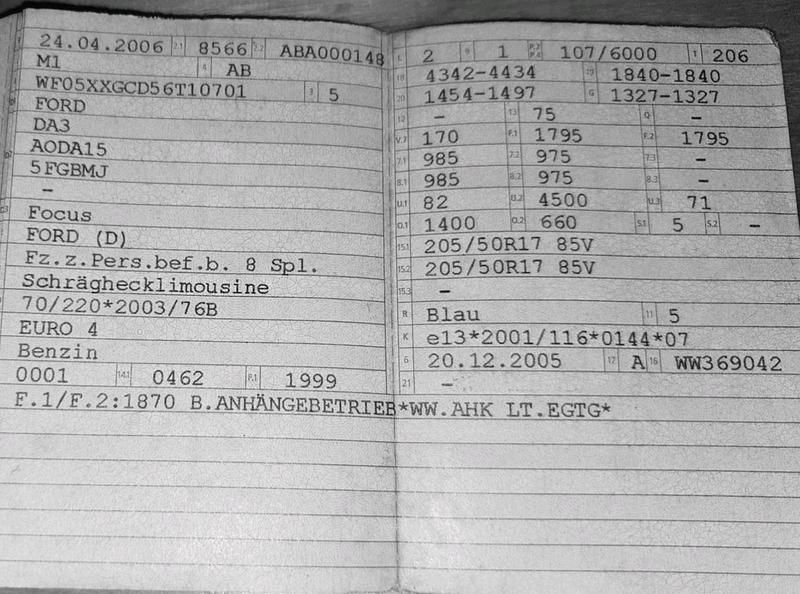 24.04.2006 2.1 8566 2.2 ABA000148
M1 4 AB
WF05XXGCD56T10701 3 5
FORD
DA3
AODA15
5FGBMJ
–
Focus
FORD (D)
Fz.z.Pers.bef.b. 8 Spl.
Schräghecklimousine
70/220*2003/76B
EURO 4
Benzin
0001 14.1 0462 P.1 1999
F.1/F.2:1870 B.ANHÄNGEBETRIEB*WW.AHK LT.EGTG*
L 2 9 1 P.2 P.4 107/6000 T 206
18 4342-4434 19 1840-1840
20 1454-1497 G 1327-1327
12 – 13 75 Q –
V.7 170 F.1 1795 F.2 1795
7.1 985 7.2 975 7.3 –
8.1 985 8.2 975 8.3 –
U.1 82 U.2 4500 U.3 71
O.1 1400 O.2 660 S.1 5 S.2 –
15.1 205/50R17 85V
15.2 205/50R17 85V
15.3 –
R Blau 11 5
K e13*2001/116*0144*07
6 20.12.2005 17 A 16 WW369042
21 –